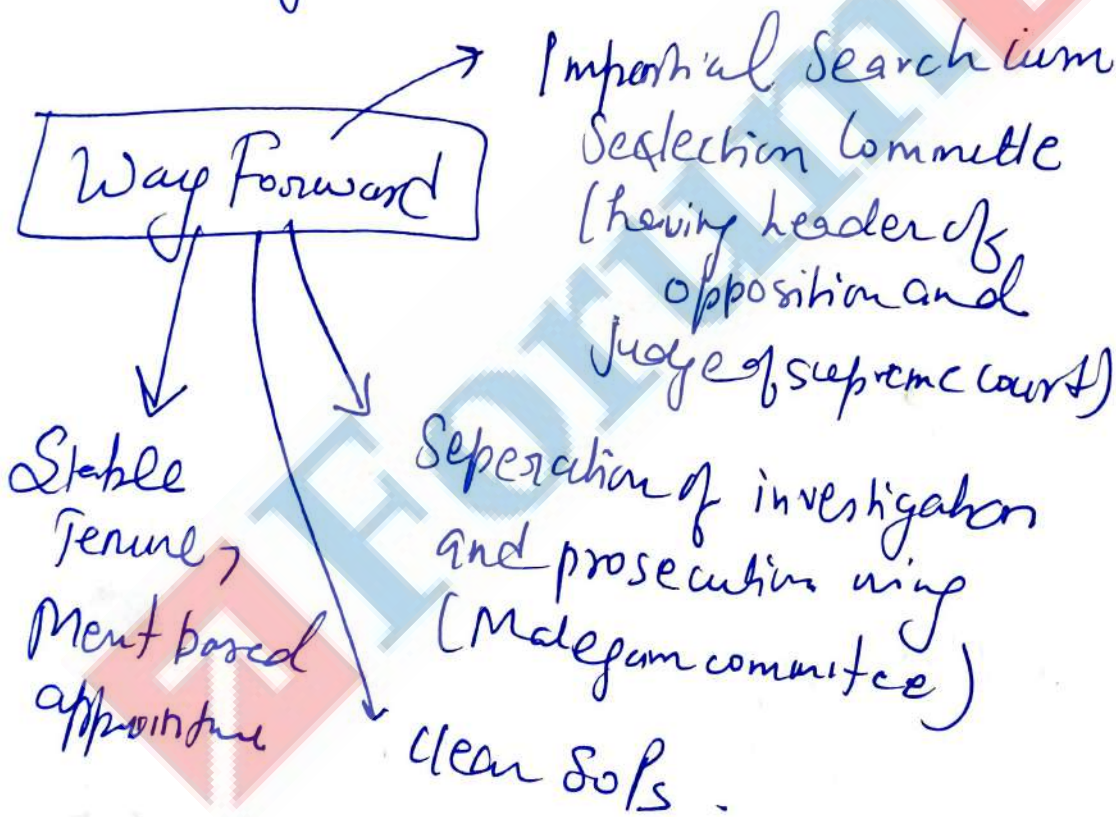 Impartial Search cum
Seqlection Committe
(having leader of
opposition and
Judge of supreme court)
Way Forward
Stable
Tenure,
Merit based
Seperation of investigation
and prosecution wing
(Malegam committee)
Clear SoPs.
Forum